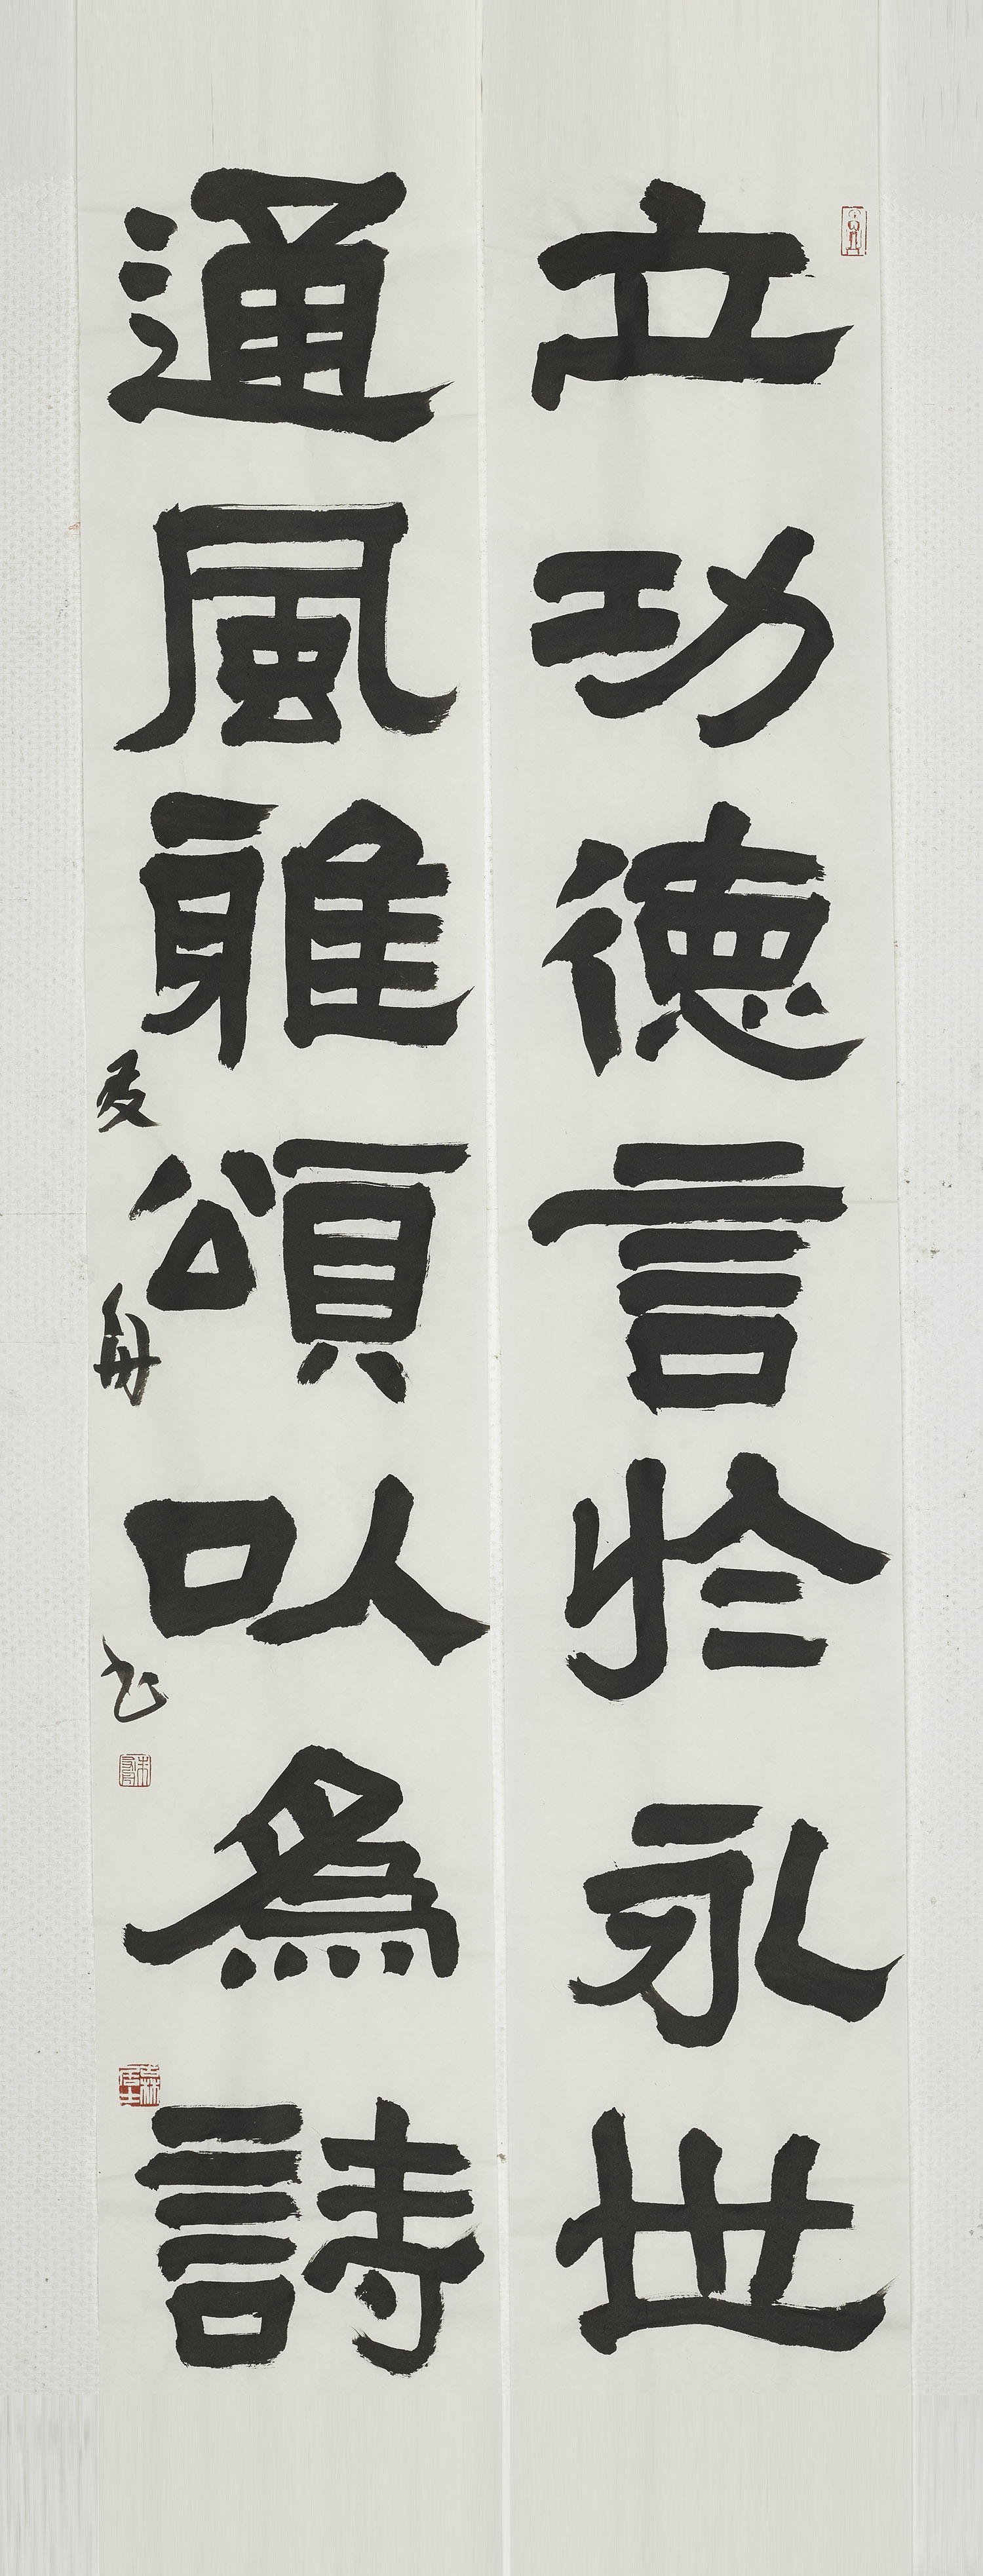 立功德言於永世
通風雅頌以為詩
友舟书